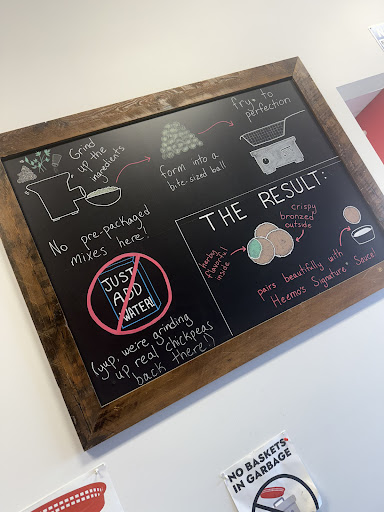 Grind
up the
ingredients
form into a
bite-sized ball
fry to
perfection
No pre-packaged
mixes here!
JUST
ADD
WATER!
(yup, we're grinding
up real chickpeas
back there!)
THE RESULT:
herby
flavorful
inside
crispy
bronzed
outside
pairs beautifully with
Heemo's Signature Sauce!
NO BASKETS
IN GARBAGE